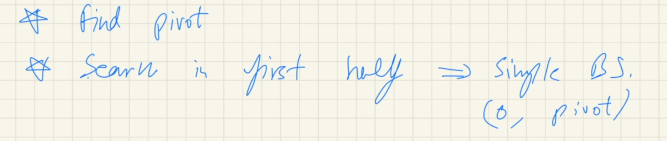 ☆ find pivot
☆ Search in first half ⇒ Simple BS.
(0, pivot)